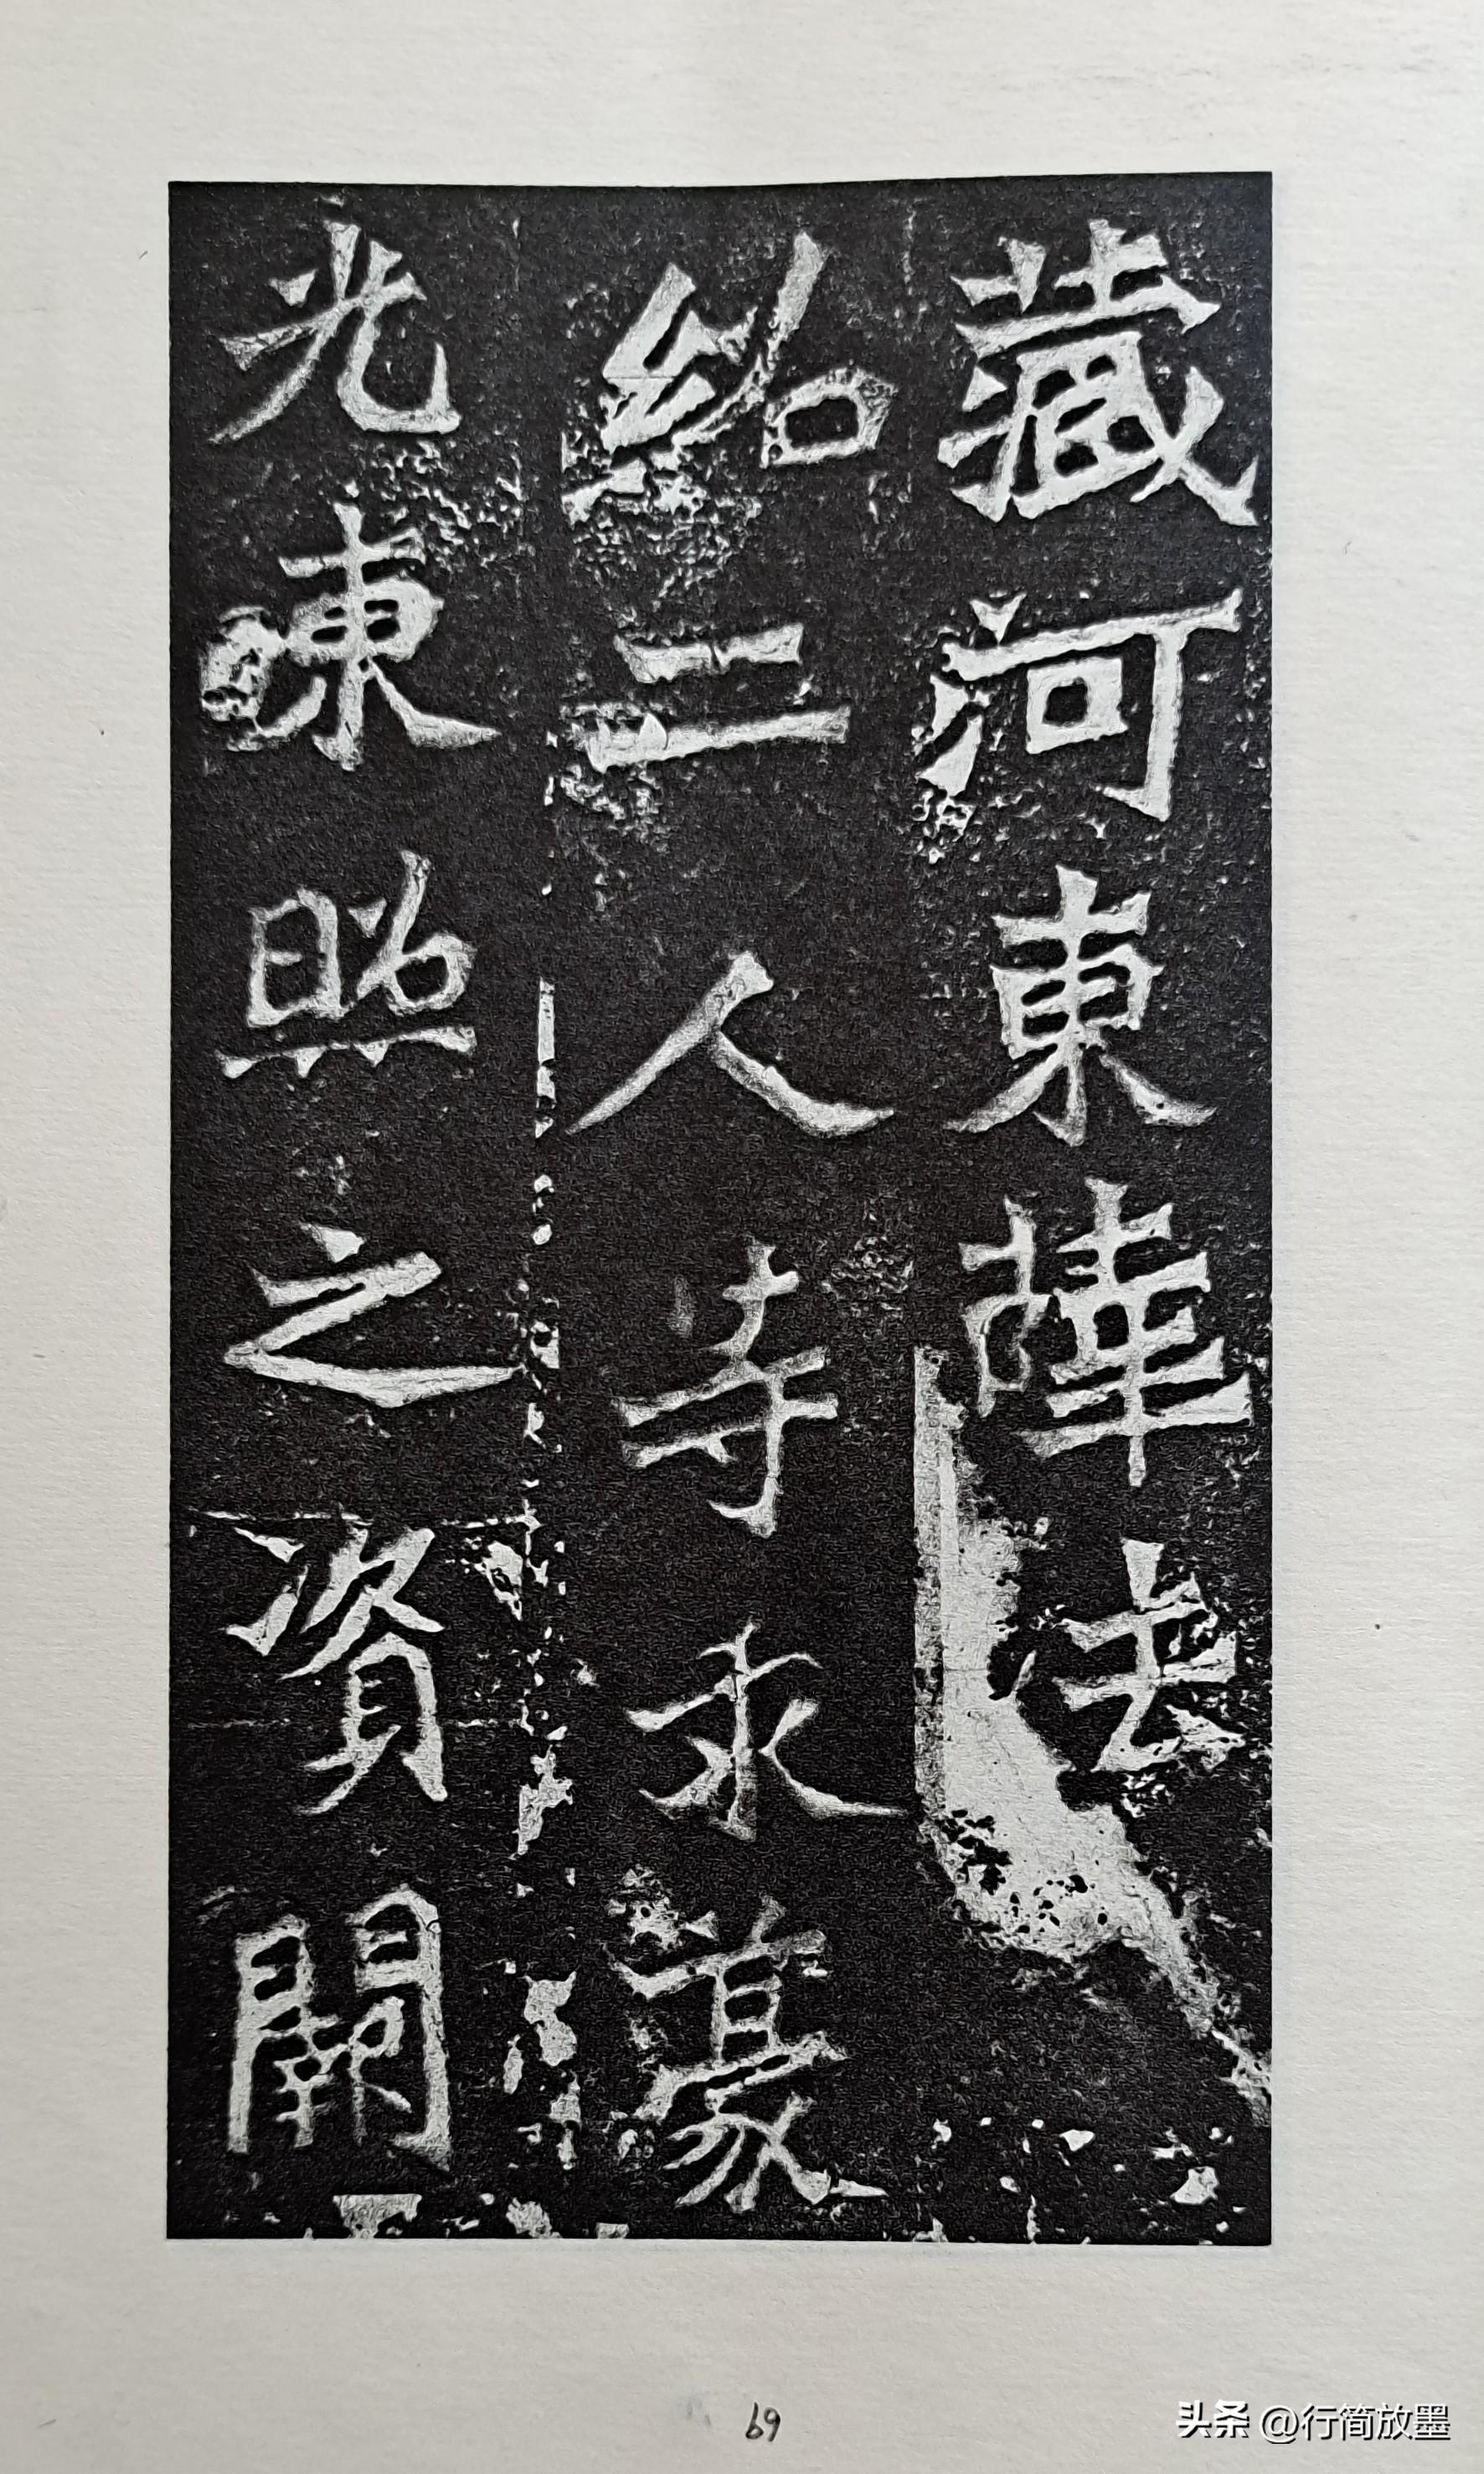 藏河東薛法
紹二人等求豪
光東照之資闕
69
头条 @行简放墨